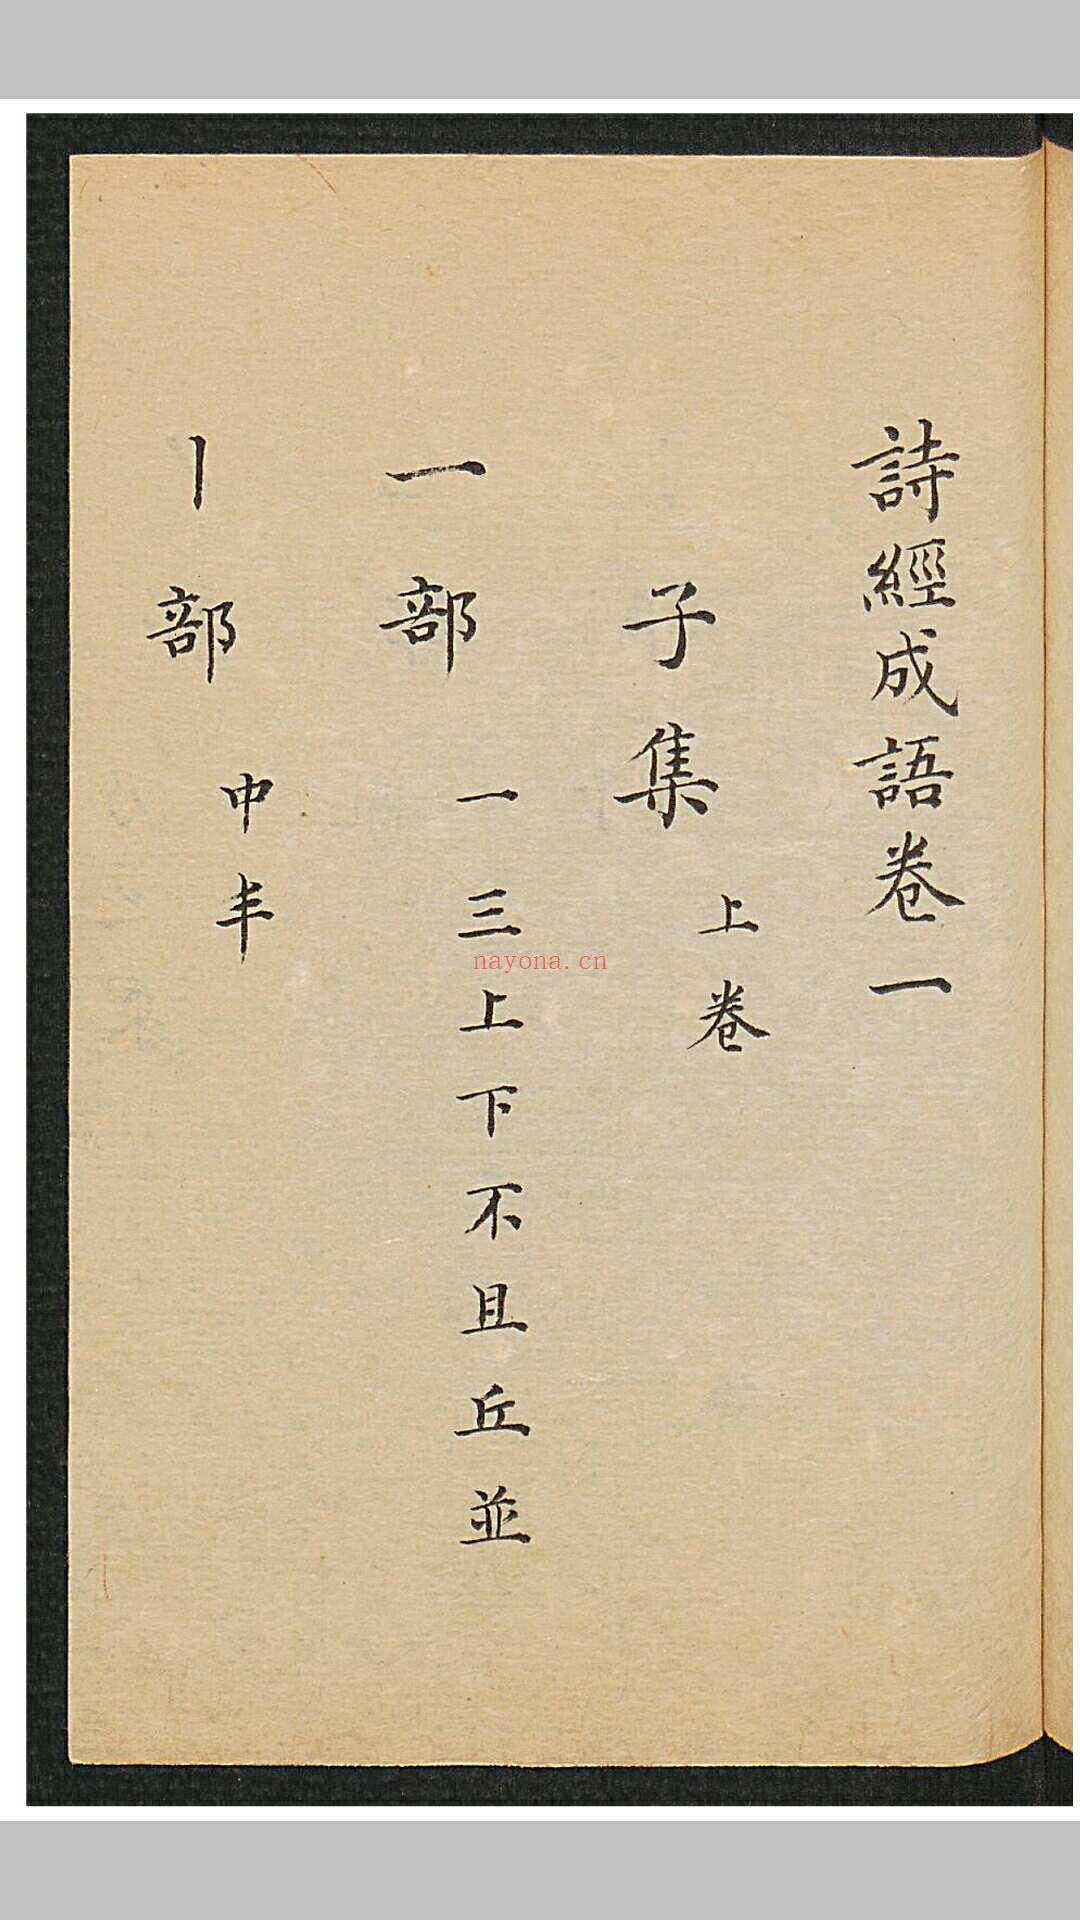 詩經成語卷一
子集 上卷
一部 一三上下不且丘並
丨部 中丰
nayona.cn